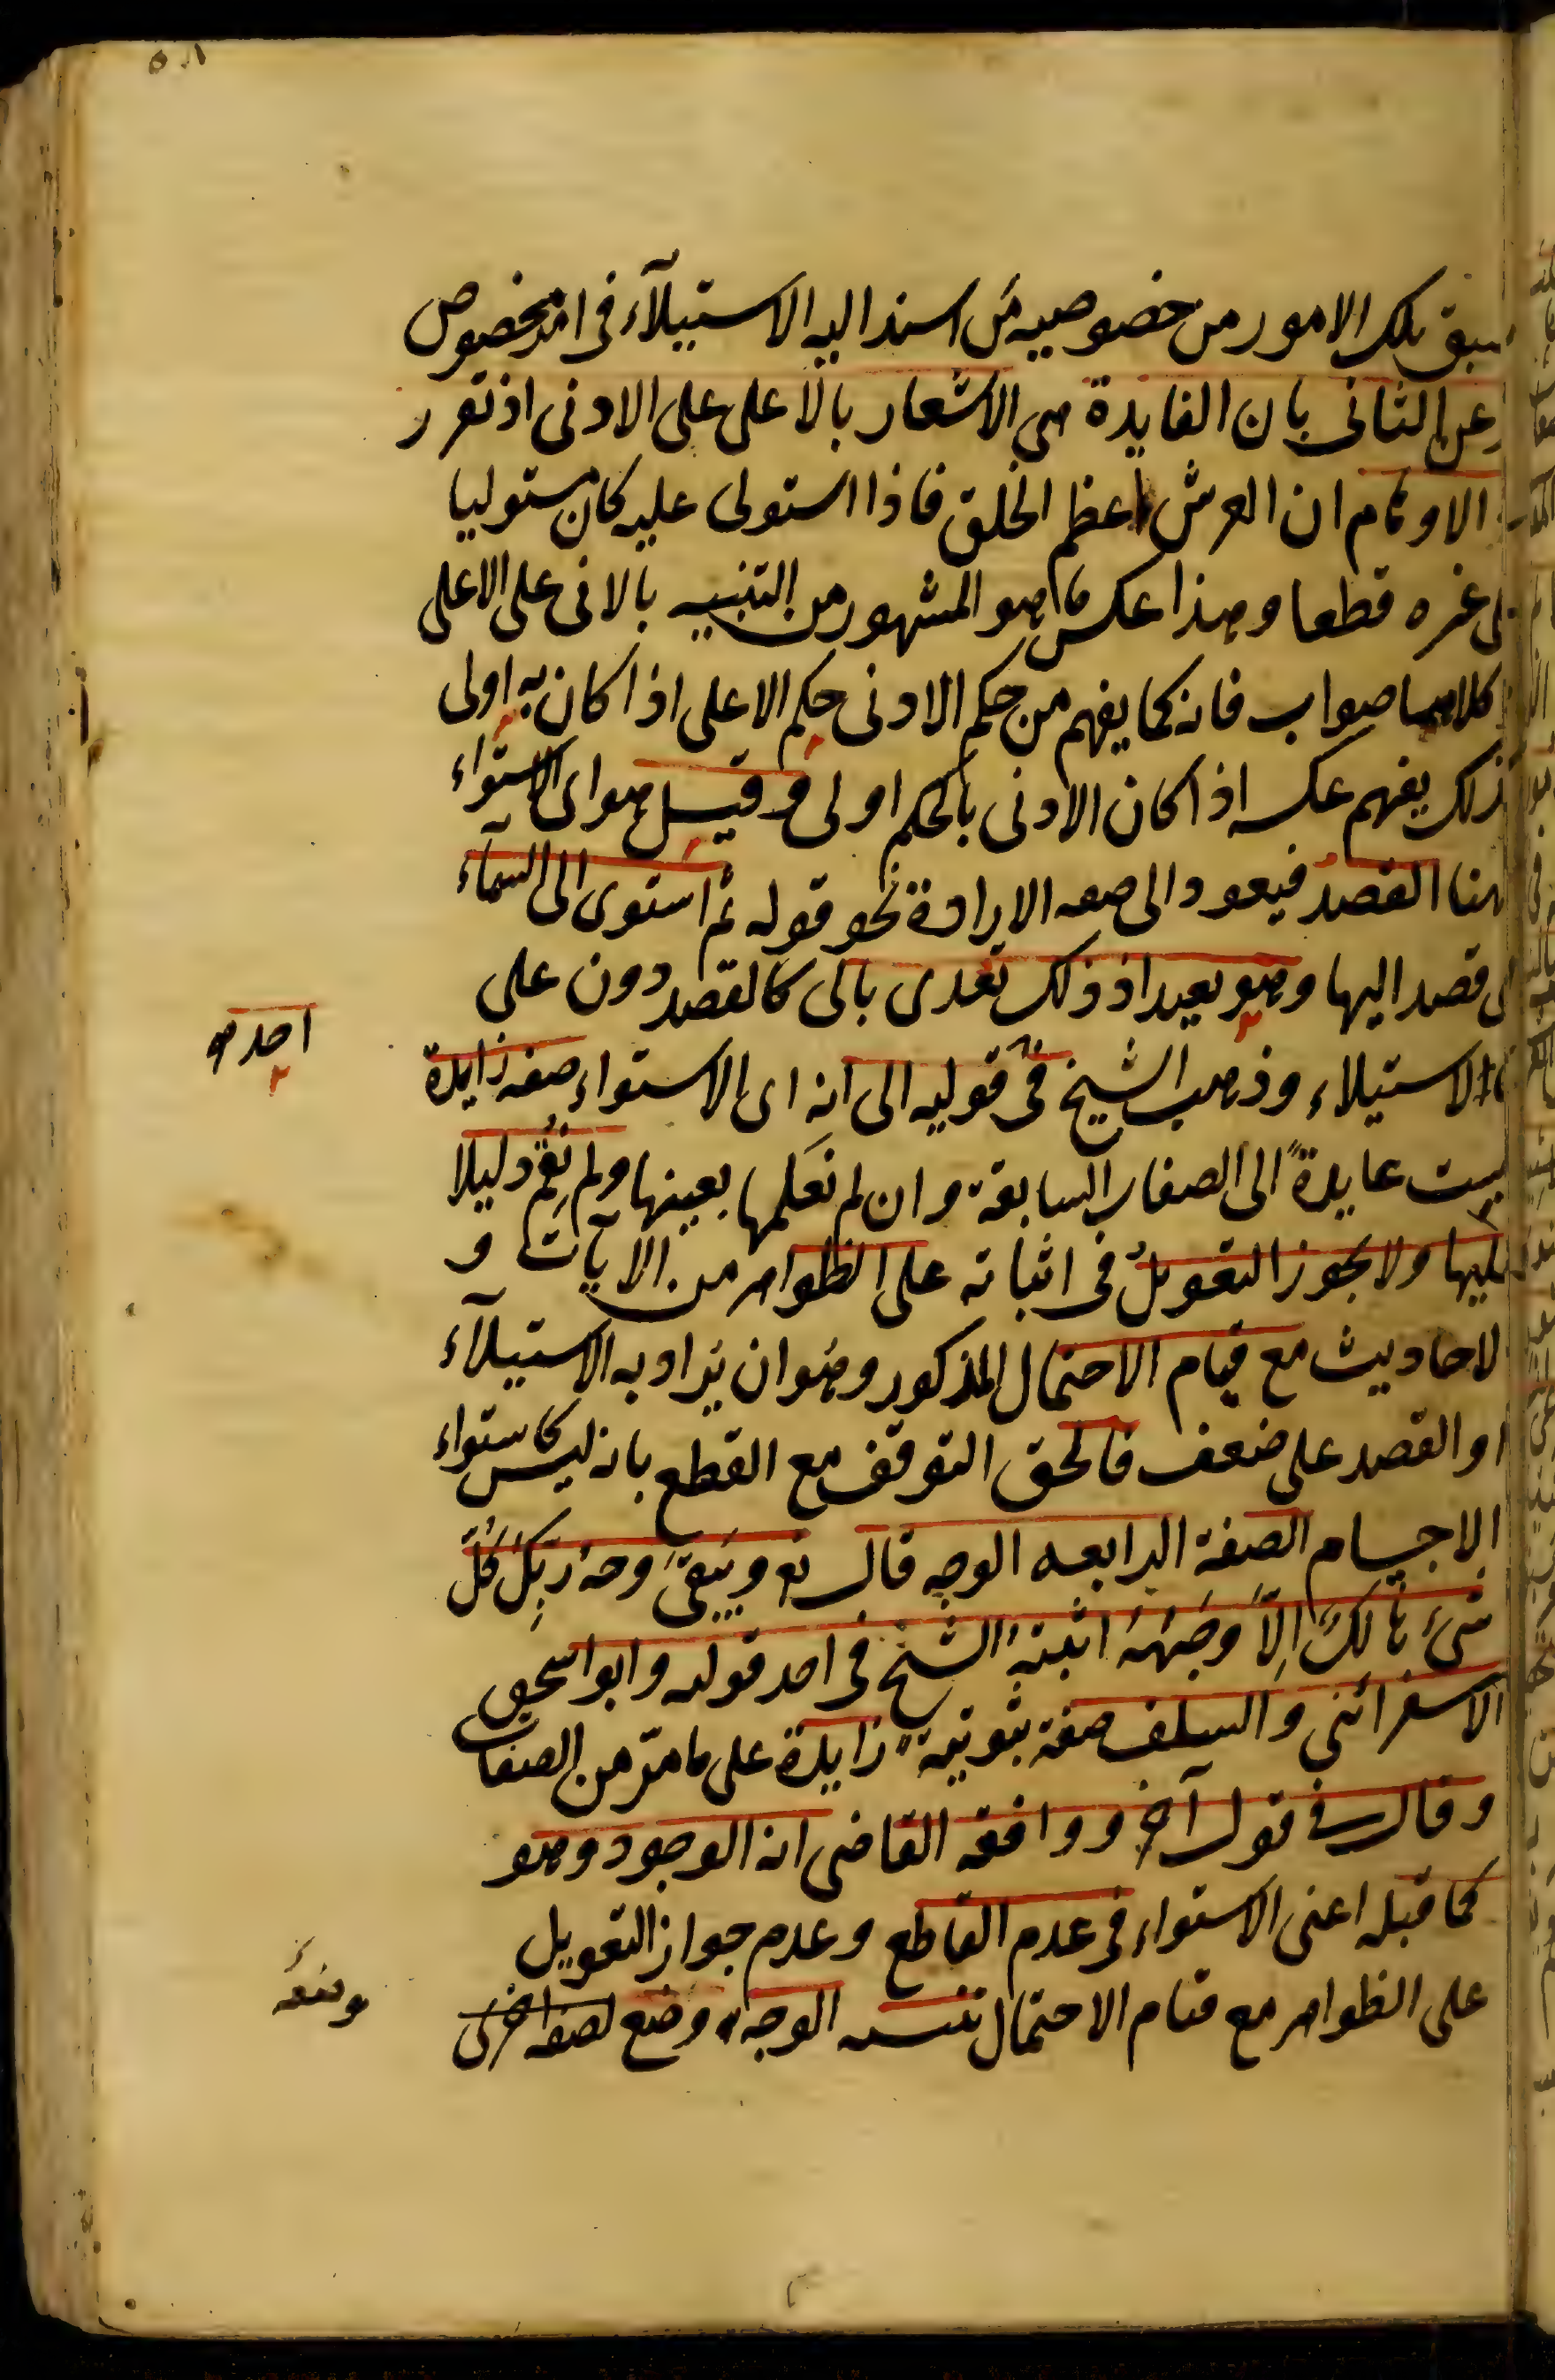 ٥٠٨
سبق تلك الامور من خصوصيه من اسند اليه الاستيلآء فى امر مخصوص
وعن الثانى بان الفايدة هى الاشعار بالاعلى على الادنى اذ تقرر
الاوهام ان العرش اعظم الخلق فاذا استولى عليه كان مستوليا
على غيره قطعا وهذا عكس ما هو المشهور من التنبيه بالادنى على الاعلى
كلاهما صواب فانه كما يفهم من حكم الادنى حكم الاعلى اذا كان به اولى
كذلك يفهم عكسه اذا كان الادنى بالحكم اولى وقيل هو اى الاستواء
ههنا القصد فيعود الى صفه الارادة نحو قوله ثم استوى الى السمآء
اى قصد اليها وهو بعيد اذ ذلك تعدى بالى كالقصد دون على
كالاستيلاء وذهب الشيخ فى قوليه الى انه اى الاستواء صفه زايدة
احد
ليست عايدةً الى الصفات السابقة وان لم نعلمها بعينها ولم نقم دليلا
عليها ولا يجوز التعويل فى اثباته على الظواهر من الايات و
الاحاديث مع قيام الاحتمال المذكور وهو ان يراد به الاستيلآء
او القصد على ضعف فالحق التوقف مع القطع بانه ليس كاستواء
الاجسام الصفة الرابعه الوجه قال تع ويبقى وجه ربك كل
شئ هالك الا وجهه اثبته الشيخ فى احد قوليه وابو اسحق
الاسفرائنى والسلف صفة ثبوتية زايدة على ما مرّ من الصفات
وقال فى قول آخر ووافقه القاضى انه الوجود وهو
كما قبله اعنى الاستواء فى عدم القاطع وعدم جواز التعويل
على الظواهر مع قيام الاحتمال تنبيه الوجه وضع لصفه اخرى
وضعه